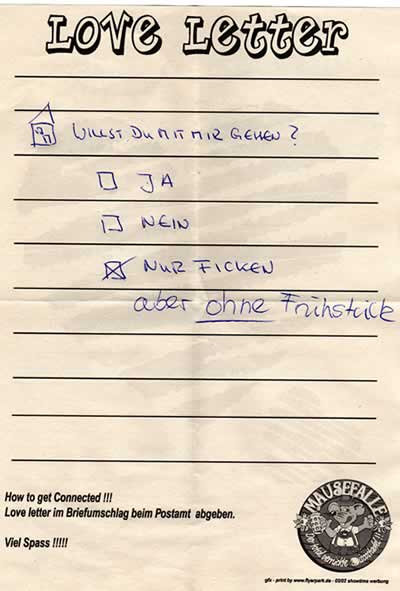 LOVE LETTER
WILLST DU MIT MIR GEHEN?
JA
NEIN
NUR FICKEN
aber ohne Frühstück
How to get Connected !!!
Love letter im Briefumschlag beim Postamt abgeben.
Viel Spass !!!!!
MAUSEFALLE
gfx - print by www.flyerpark.de - 03/02 showtime werbung